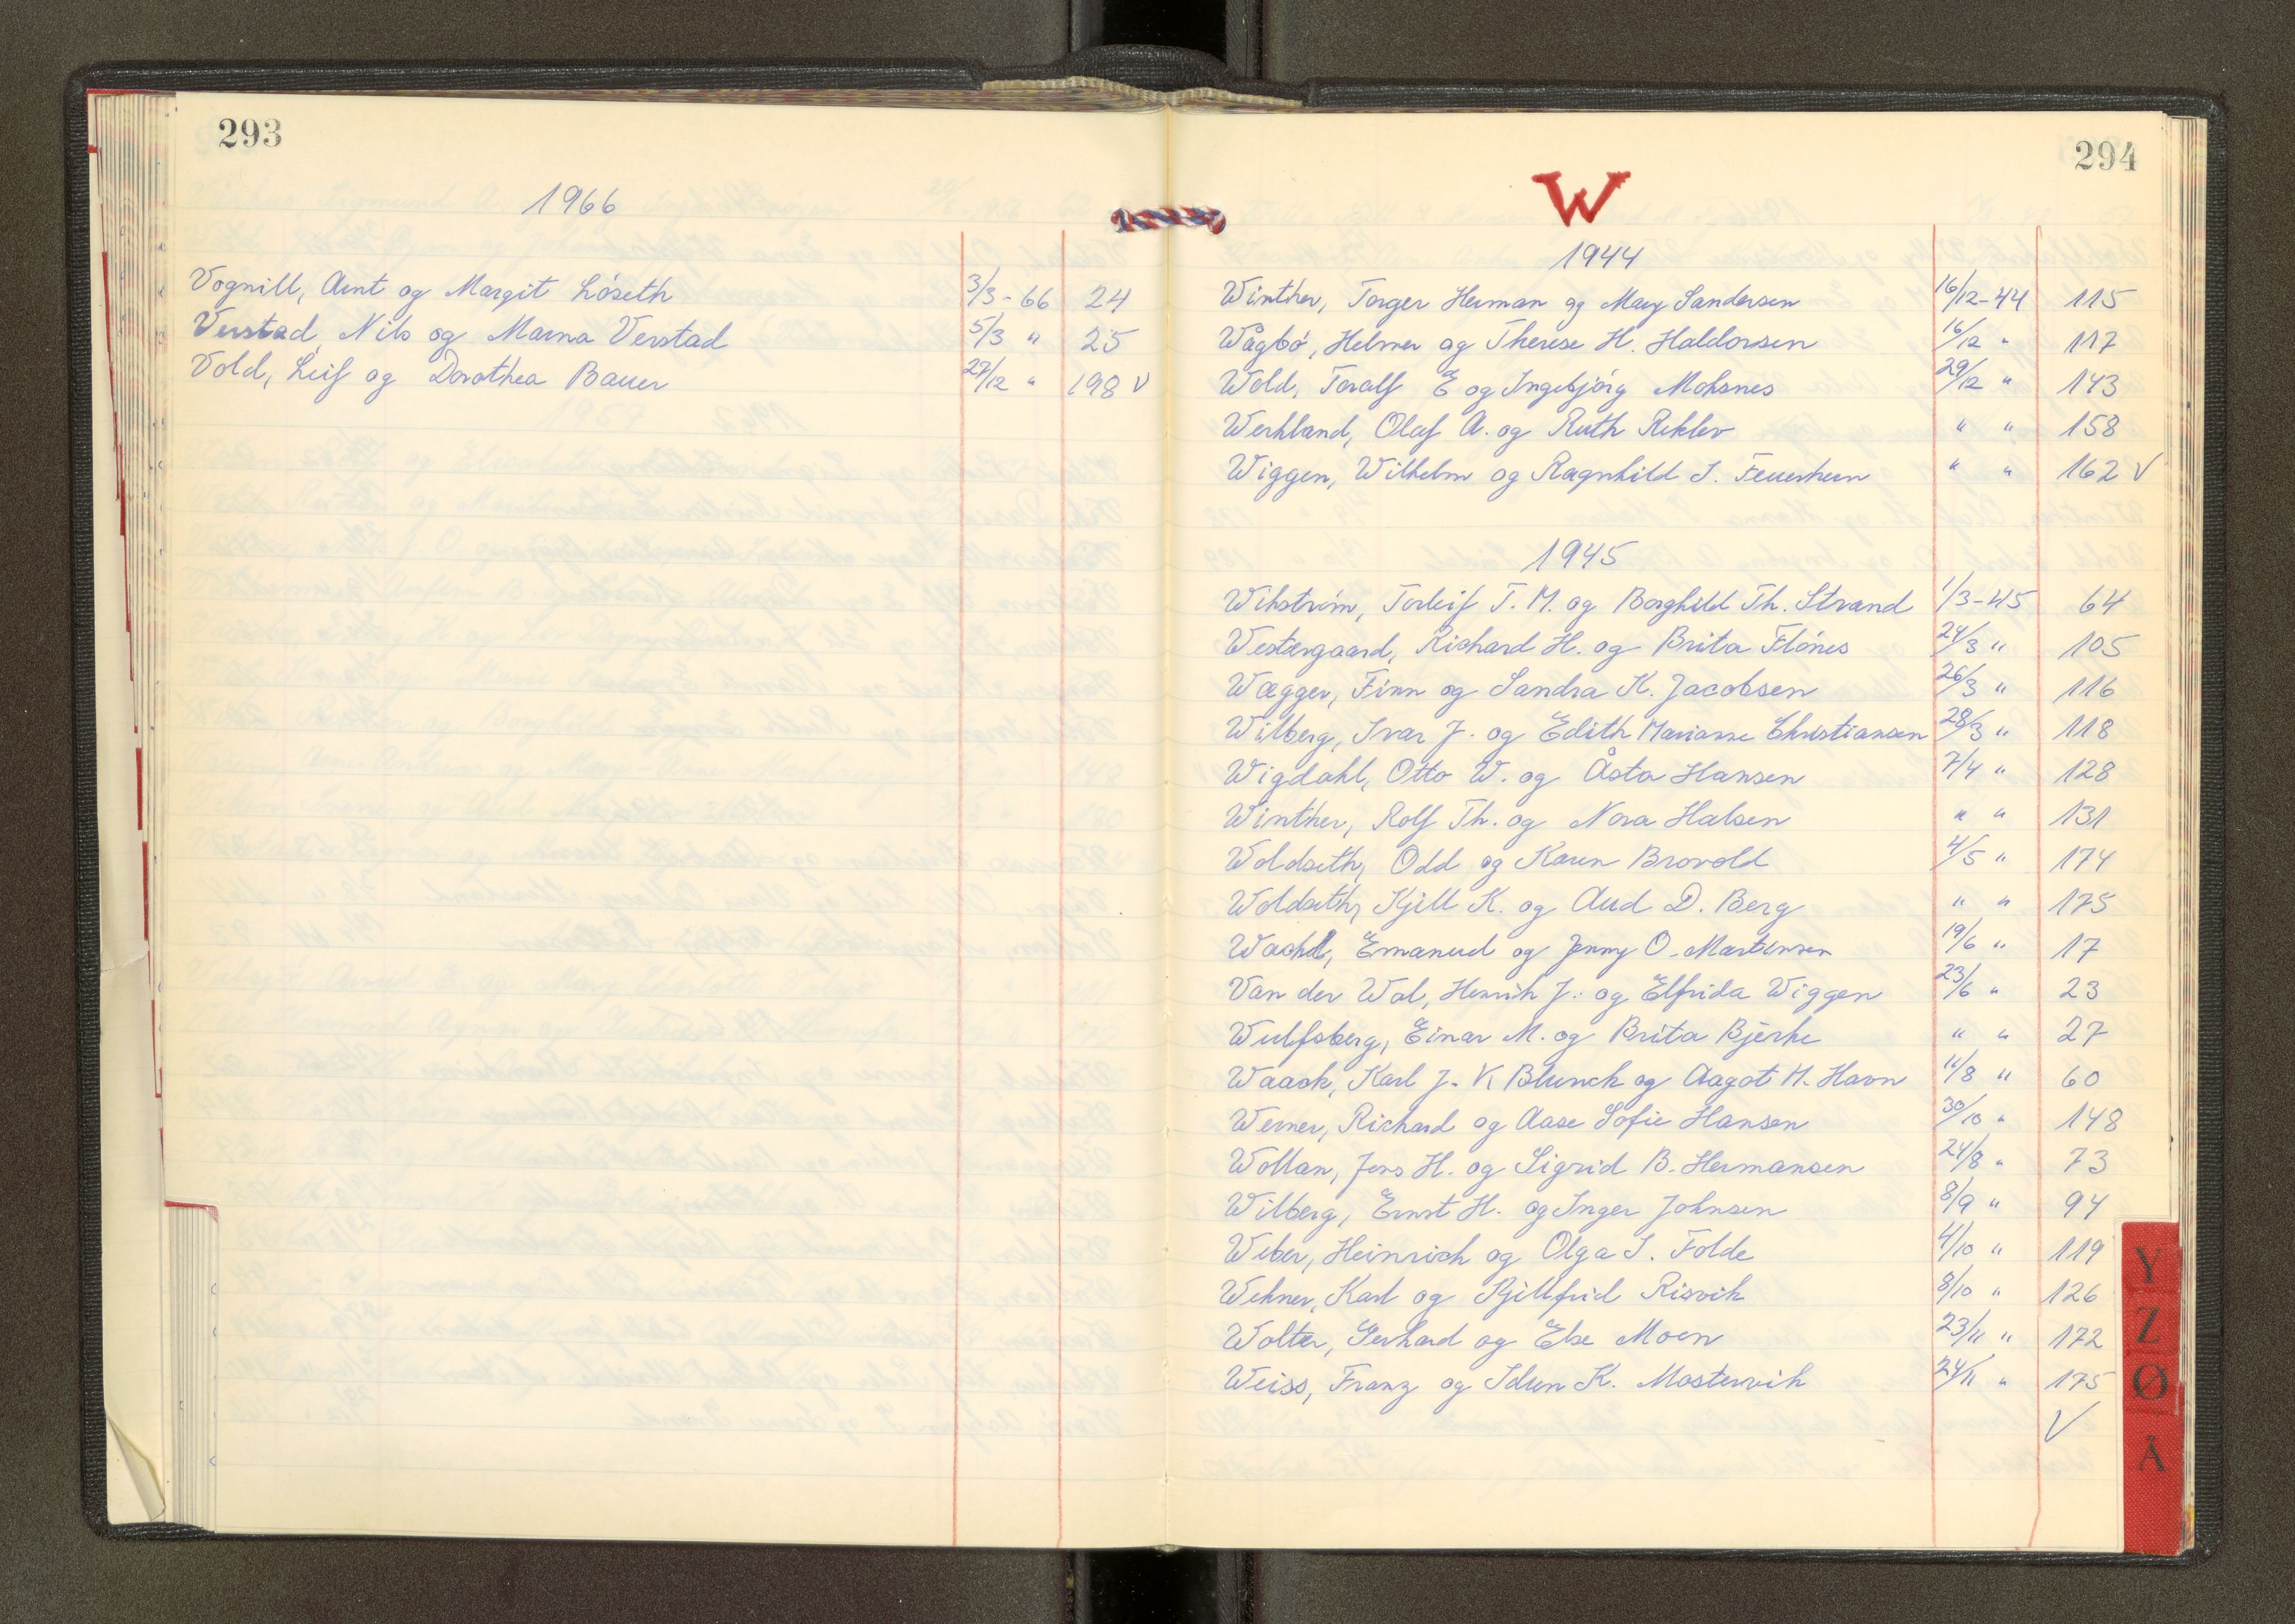 293
1966
Vognill, Arnt og Margit Løseth 3/3-66 24
Verstad, Nils og Marna Verstad 5/3 " 25
Vold, Leif og Dorothea Bauer 27/12 " 198 V
294
W
1944
Winther, Torger Herman og Mary Sandersen 16/12-44 115
Wågbø, Helmer og Therese H. Haldorsen 16/12 " 117
Wold, Toralf E og Ingebjørg Moksnes 29/12 " 143
Werkland, Olaf A. og Ruth Reklev " " 158
Wiggen, Wilhelm og Ragnhild I. Feuerherm " " 162 V
1945
Wikstrøm, Torleif T. M. og Borghild Th. Strand 1/3-45 64
Westergaard, Richard H. og Brita Flønes 24/3 " 105
Wægger, Finn og Sandra K. Jacobsen 26/3 " 116
Wilberg, Ivar J. og Edith Marianne Christiansen 28/3 " 118
Wigdahl, Otto W. og Åsta Hansen 7/4 " 128
Winther, Rolf Th. og Nora Halsen " " 131
Woldseth, Odd og Karen Brovold 4/5 " 174
Woldseth, Kjell K. og Aud D. Berg " " 175
Wachtl, Emanuel og Jenny O. Martinsen 19/6 " 17
Van der Wal, Henrik J. og Elfrida Wiggen 23/6 " 23
Wulfsberg, Einar M. og Brita Bjerke " " 27
Waack, Karl J. K Blunck og Aagot M. Havn 11/8 " 60
Werner, Richard og Aase Sofie Hansen 30/10 " 148
Wollan, Jens H. og Sigrid B. Hermansen 24/8 " 73
Wilberg, Ernst H. og Inger Johnsen 8/9 " 94
Weber, Heinrich og Olga I. Folde 4/10 " 119
Wehner, Karl og Kjellfrid Risvik 8/10 " 126
Wolter, Gerhard og Else Moen 23/11 " 172
Weiss, Franz og Idun K. Mostervik 24/11 " 175
V
Y
Z
Ø
Å